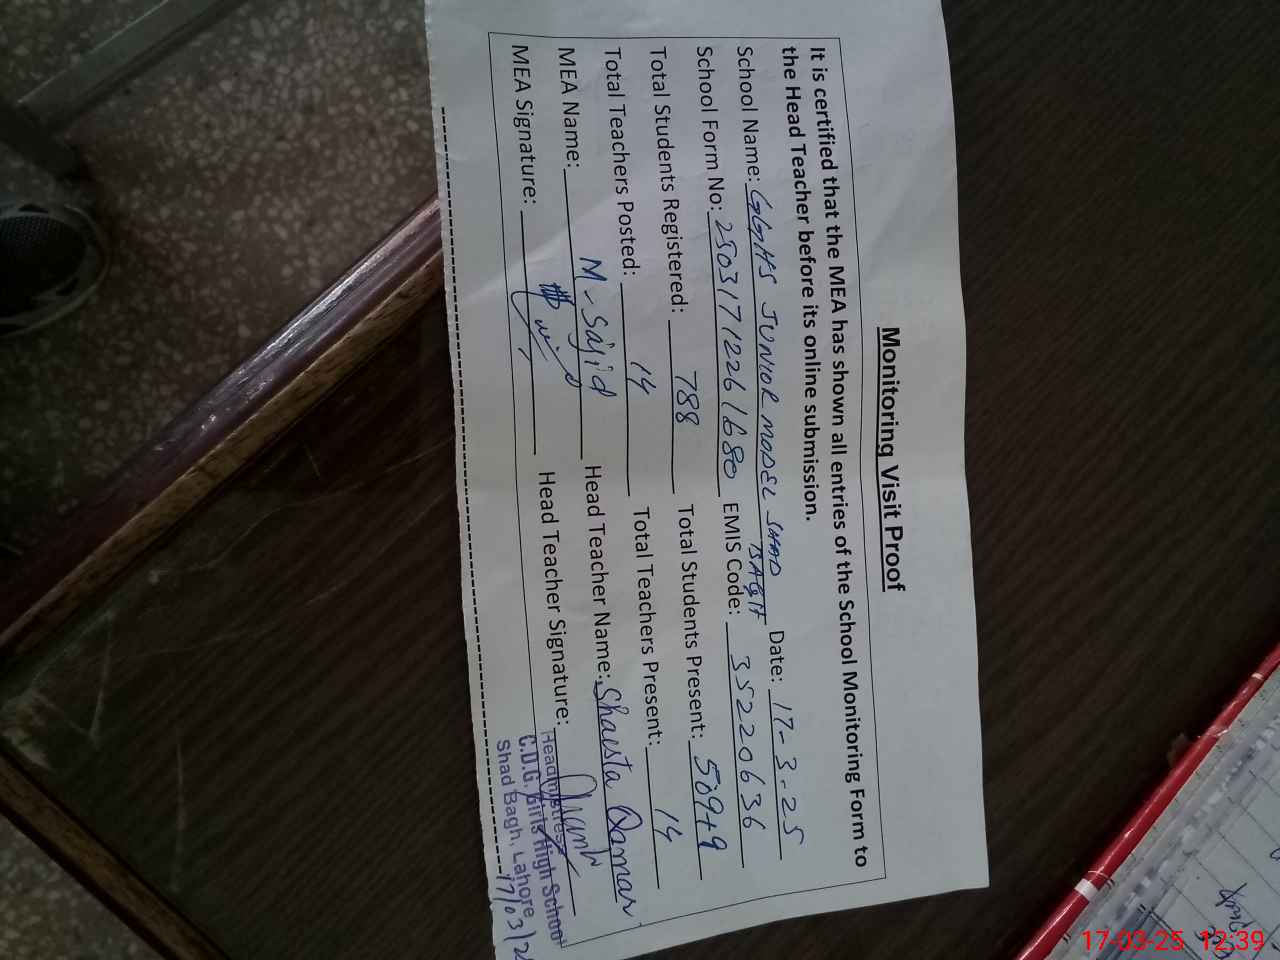 Monitoring Visit Proof
It is certified that the MEA has shown all entries of the School Monitoring Form to
the Head Teacher before its online submission.
School Name: GGHS JUNIOR MODEL SHAD BAGH Date: 17-3-25
School Form No: 25031712261680 EMIS Code: 35220636
Total Students Registered: 788 Total Students Present: 509+9
Total Teachers Posted: 14 Total Teachers Present: 14
MEA Name: M. Sajid Head Teacher Name: Shaista Qamar
MEA Signature: Head Teacher Signature:
Headmistress
C.D.G. Girls High School
Shad Bagh, Lahore
17/03/2
17-03-25 12:39